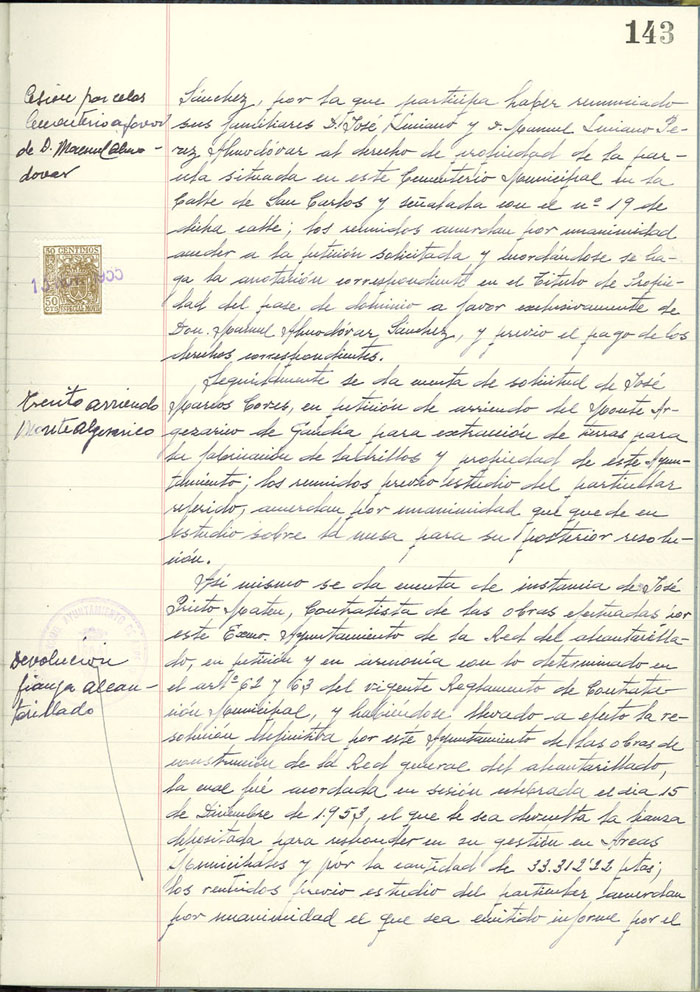 143
Cesión parcelas
Cementerio a favor
de D. Manuel Almo-
dovar
50 CENTIMOS
50
CTS ESPECIAL MOVIL
Sánchez, por la que participa haber renunciado
sus familiares D. José, Luciano y D. Manuel Luciano Pe-
Almodóvar al derecho de propiedad de la par-
cela situada en este Cementerio Municipal en la
Calle de San Carlos y señalada con el nº 19 de
dicha calle; los reunidos acuerdan por unanimidad
acceder a la petición solicitada y acordándose se ha-
ga la anotación correspondiente en el Título de Propie-
dad del pase de dominio a favor exclusivamente de
Don. Manuel Almodóvar Sánchez, y previo el pago de los
derechos correspondientes.
Escrito arriendo
Monte Algezarico
Seguidamente se da cuenta de solicitud de José
Marcos Cores, en petición de arriendo del Monte Ar-
gezarico de Gandia para extracción de tierras para
la fabricación de ladrillos y propiedad de este Ayun-
tamiento; los reunidos previo estudio del particular
referido, acuerdan por unanimidad que quede en
estudio sobre la mesa para su posterior resolu-
ción.
Devolucion
fianza alcan-
tarillado
Así mismo se da cuenta de instancia de José
Prieto Mateu, Contratista de las obras efectuadas por
este Excmo. Ayuntamiento de la Red del alcantarilla-
do, en petición y en armonía con lo determinado en
el artº 62 y 63 del vigente Reglamento de Contrata-
ción Municipal, y habiéndose llevado a efecto la re-
definitiva por este Ayuntamiento de las obras de
construcción de la Red general del alcantarillado,
la cual fué acordada en sesión celebrada el dia 15
de Diciembre de 1.953, el que le sea devuelta la fianza
depositada para responder en su gestión en Arcas
Municipales y por la cantidad de 33.312'22 ptas;
los reunidos previo estudio del particular, acuerdan
por unanimidad el que sea emitido informe por el